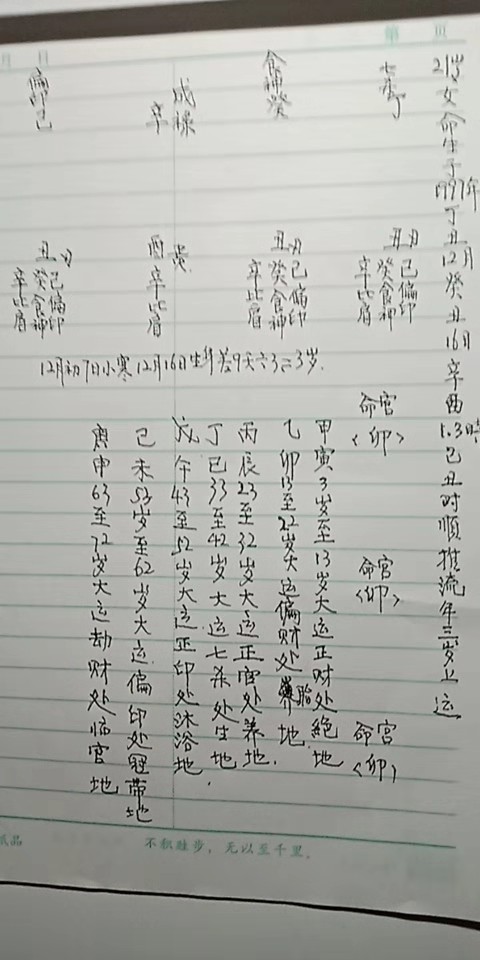 第 页
月 日
21岁女命生于1997年丁丑12月癸丑16日辛酉1.3時己丑时順推流年三岁上运
七杀丁
食神癸
辛
偏印己
丑
己偏印
癸食神
辛比肩
丑
己偏印
癸食神
辛比肩
酉
辛比肩
丑
己偏印
癸食神
辛比肩
12月初7日小寒12月16日生
3岁.
命宫<卯>
命宫<卯>
命宫<卯>
甲寅3岁至13岁大运正财处絶地
乙卯13至22岁大运偏财处胎地.
丙辰23至32岁大运正官处养地.
丁巳33至42岁大运七杀处生地.
戊午43至52岁大运正印处沐浴地.
己未53岁至62岁大运偏印处冠带地
庚申63至72岁大运劫财处临官地
纸品
不积跬步，无以至千里。